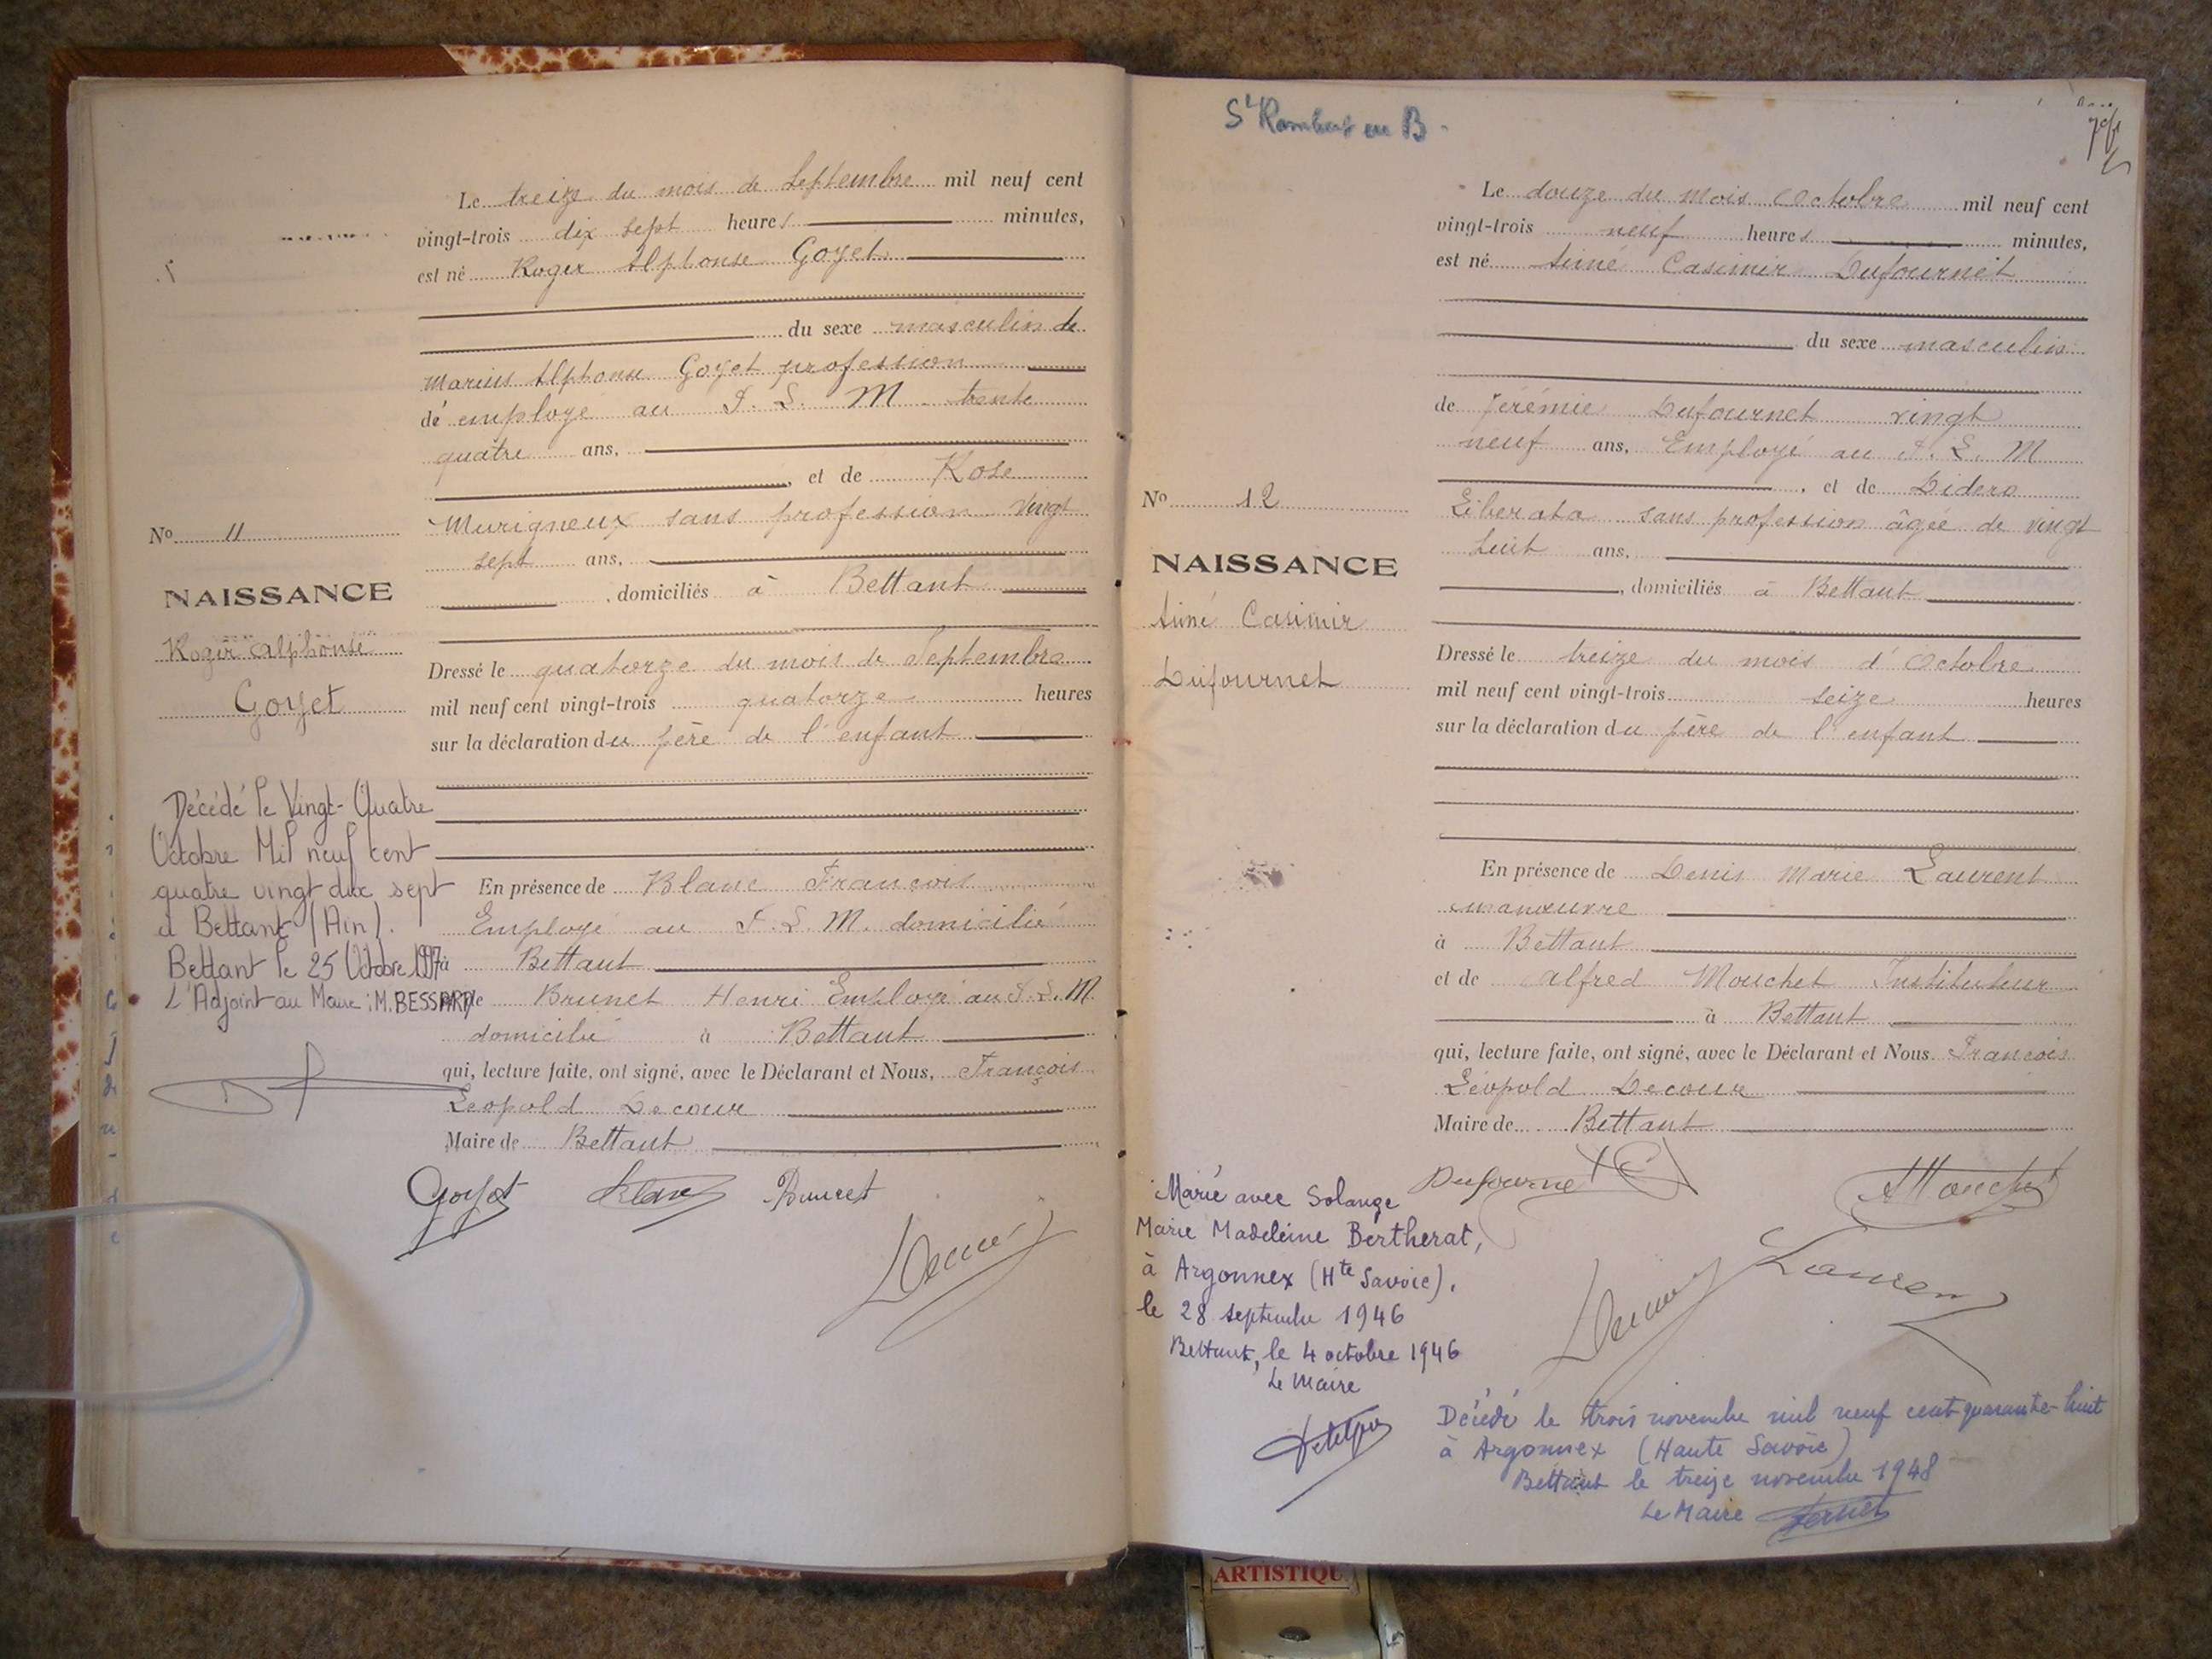 Le treize du mois de Septembre mil neuf cent
vingt-trois dix sept heures minutes,
est né Roger Alphonse Goyet
du sexe masculin de
Marius Alphonse Goyet profession
de employé au P. L. M trente
quatre ans,
, et de Rose
Murigneux sans profession vingt
sept ans,
, domiciliés à Bettant
Dressé le quatorze du mois de Septembre
mil neuf cent vingt-trois quatorze heures
sur la déclaration du père de l'enfant
En présence de Blanc François
Employé au P. L. M. domicilié
à Bettant
et de Brunet Henri Employé au P. L. M
domicilié à Bettant
qui, lecture faite, ont signé, avec le Déclarant et Nous, François
Léopold Decour
Maire de Bettant
Goyet Blanc Brunet
Decour
No 11
NAISSANCE
Roger Alphonse
Goyet
Décédé le Vingt-Quatre
Octobre Mil neuf cent
quatre vingt dix sept
à Bettant (Ain).
Bettant le 25 Octobre 1997
L'Adjoint au Maire : M. BESSARD
St Rambert en B
Le douze du mois Octobre mil neuf cent
vingt-trois neuf heures minutes,
est né Aimé Casimir Dufournet
du sexe masculin
de Jérémie Dufournet vingt
neuf ans, Employé au P. L. M
, et de Didero
Liberata sans profession âgée de vingt
huit ans,
, domiciliés à Bettant
Dressé le treize du mois d'Octobre
mil neuf cent vingt-trois seize heures
sur la déclaration du père de l'enfant
En présence de Denis Marie Laurent
manœuvre
à Bettant
et de Alfred Mouchet Instituteur
à Bettant
qui, lecture faite, ont signé, avec le Déclarant et Nous François
Léopold Decour
Maire de Bettant
Dufournet AMouchet
Decour Laurent
No 12
NAISSANCE
Aimé Casimir
Dufournet
Marié avec Solange
Marie Madeleine Bertherat,
à Argonnex (Hte Savoie),
le 28 septembre 1946
Bettant, le 4 octobre 1946
Le Maire
Décédé le trois novembre mil neuf cent quarante-huit
à Argonnex (Haute Savoie)
Bettant le treize novembre 1948
Le Maire
ARTISTIQU